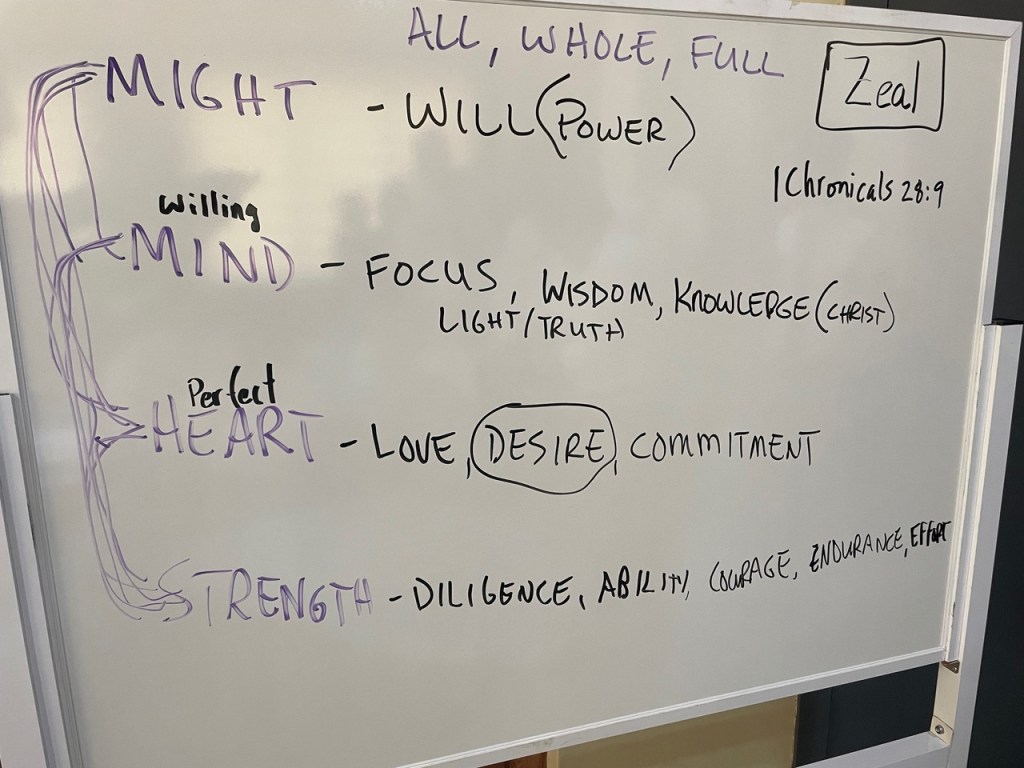 ALL, WHOLE, FULL
Zeal
MIGHT - WILL (POWER)
1 Chronicals 28:9
Willing
MIND - FOCUS, WISDOM, KNOWLEDGE (CHRIST)
LIGHT/TRUTH
Perfect
HEART - LOVE, DESIRE, COMMITMENT
STRENGTH - DILIGENCE, ABILITY, COURAGE, ENDURANCE, EFFORT